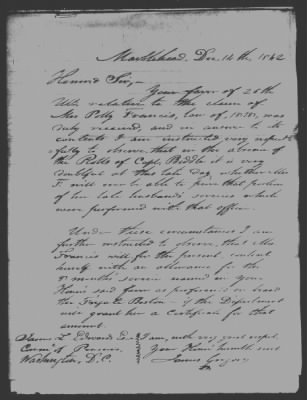 Marblehead, Dec. 14th, 1842
Honour'd Sir,—
Your favor of 25th
Ulto relative to the claim of
Mrs Polly Francis, (Act of 1838), was
duly received, and in answer to its
contents I am instructed very respect
fully to observe, that in the absence of
the Rolls of Capt. Biddle it is very
doubtful at this late day, whether Mrs
F. will ever be able to prove that portion
of her late husband's services which
were performed with that officer.
Under these circumstances I am
further instructed to observe, that Mrs
Francis will for the present, content
herself with an allowance for the
months service named in your
Honor's said favor as performed on board
the Frigate Boston — if the Department
will grant her a Certificate for that
amount.
James L. Edwards Esq.
Com'r of Pensions,
Washington, D.C.
I am, with very great respect,
Your Honor's humble servt
James Gregory